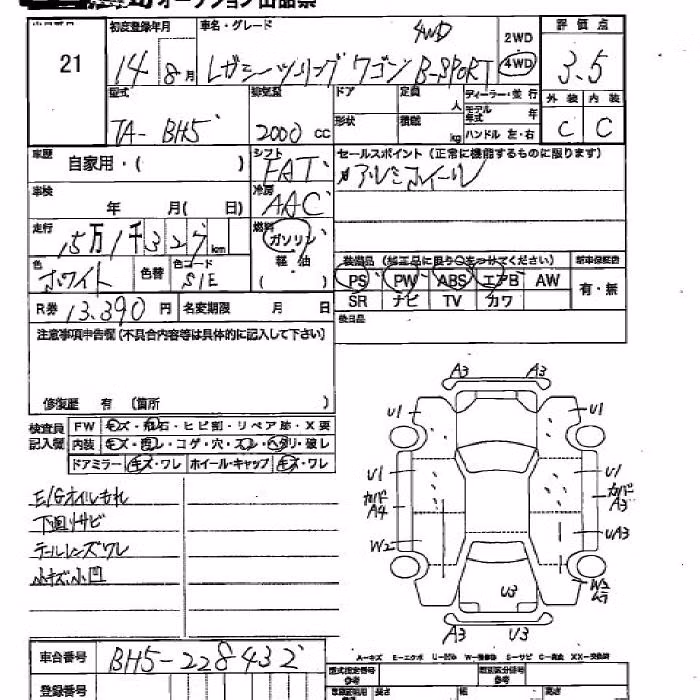 オークション出品票
21
初度登録年月
14 8月
車名・グレード
4WD
レガシーツーリングワゴン B-SPORT
2WD
4WD
評価点
3.5
型式
TA- BH5
排気量
2000 cc
ドア
形状
定員 人
積載 kg
ディーラー・並行
モデル年式 年
ハンドル 左・右
外装 内装
C C
車歴
自家用・( )
シフト
FAT
セールスポイント (正常に機能するものに限ります)
アルミホイール
車検
年 月( 日)
冷房
AAC
走行
15万1千327 km
燃料
ガソリン
軽油
( )
色
ホワイト
色替
色コード
51E
装備品 (純正品に限り○をつけてください)
新車保証書
PS PW ABS エアB AW
有・無
SR ナビ TV カワ
R券 13.390 円
名変期限 月 日
後日品
注意事項申告欄 (不具合内容等は具体的に記入して下さい)
修復歴 有 (箇所 )
検査員記入欄
FW キズ・飛石・ヒビ割・リペア跡・X要
内装 キズ・汚レ・コゲ・穴・スレ・ヘタリ・破レ
ドアミラー キズ・ワレ ホイール・キャップ キズ・ワレ
E/Gオイルもれ
下廻りサビ
テールレンズワレ
小キズ小凹
A3 A3
U1 U1
U1 U1
カバド A4
カバド A3
UA3
W2
U3
W2
ムラ
A3 U3
A-キズ E-エクボ U-凹み W-補修跡 S-サビ C-腐食 XX-交換済
車台番号
BH5-228432
型式指定番号
参考
類別区分番号
参考
登録番号
長さ
幅
高さ